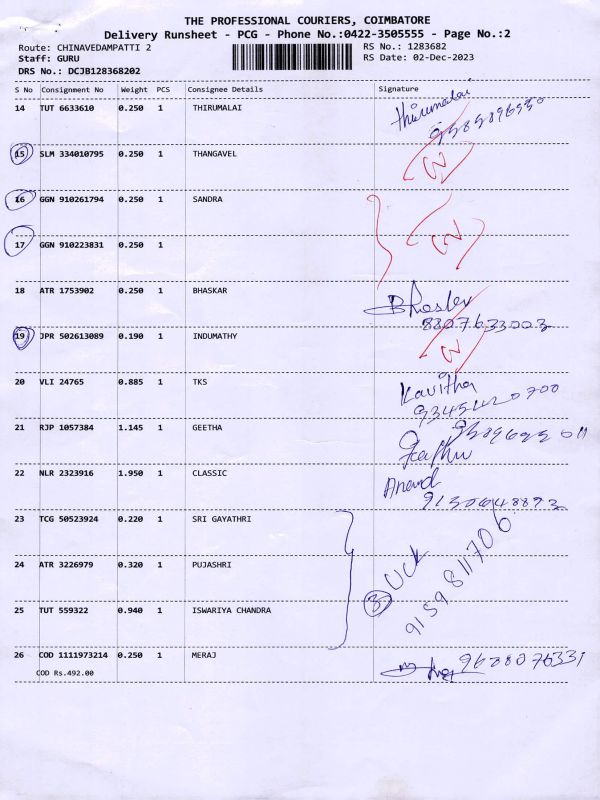 THE PROFESSIONAL COURIERS, COIMBATORE
Delivery Runsheet - PCG - Phone No.:0422-3505555 - Page No.:2
Route: CHINAVEDAMPATTI 2 RS No.: 1283682
Staff: GURU RS Date: 02-Dec-2023
DRS No.: DCJB128368202
S No Consignment No Weight PCS Consignee Details Signature
14 TUT 6633610 0.250 1 THIRUMALAI Thirumalai
15 SLM 334010795 0.250 1 THANGAVEL
16 GGN 910261794 0.250 1 SANDRA
17 GGN 910223831 0.250 1
18 ATR 1753902 0.250 1 BHASKAR
8807633003
19 JPR 502613089 0.190 1 INDUMATHY
20 VLI 24765 0.885 1 TKS Kavitha
21 RJP 1057384 1.145 1 GEETHA
22 NLR 2323916 1.950 1 CLASSIC Anand
23 TCG 50523924 0.220 1 SRI GAYATHRI
24 ATR 3226979 0.320 1 PUJASHRI
25 TUT 559322 0.940 1 ISWARIYA CHANDRA 3 9159811706
26 COD 1111973214 0.250 1 MERAJ
COD Rs.492.00